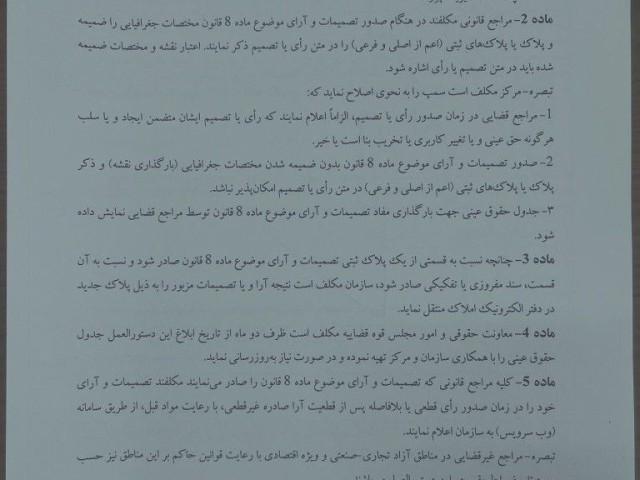 ماده 2- مراجع قانونی مکلفند در هنگام صدور تصمیمات و آرای موضوع ماده 8 قانون مختصات جغرافیایی را ضمیمه
و پلاک یا پلاک‌های ثبتی (اعم از اصلی و فرعی) را در متن رأی یا تصمیم ذکر نمایند. اعتبار نقشه و مختصات ضمیمه
شده باید در متن تصمیم یا رأی اشاره شود.
تبصره- مرکز مکلف است سمپ را به نحوی اصلاح نماید که:
1- مراجع قضایی در زمان صدور رأی یا تصمیم، الزاماً اعلام نمایند که رأی یا تصمیم ایشان متضمن ایجاد و یا سلب
هرگونه حق عینی و یا تغییر کاربری یا تخریب بنا است یا خیر.
2- صدور تصمیمات و آرای موضوع ماده 8 قانون بدون ضمیمه شدن مختصات جغرافیایی (بارگذاری نقشه) و ذکر
پلاک یا پلاک‌های ثبتی (اعم از اصلی و فرعی) در متن رأی یا تصمیم امکان‌پذیر نباشد.
۳- جدول حقوق عینی جهت بارگذاری مفاد تصمیمات و آرای موضوع ماده 8 قانون توسط مراجع قضایی نمایش داده
شود.
ماده 3- چنانچه نسبت به قسمتی از یک پلاک ثبتی تصمیمات و آرای موضوع ماده 8 قانون صادر شود و نسبت به آن
قسمت، سند مفروزی یا تفکیکی صادر شود، سازمان مکلف است نتیجه آرا و یا تصمیمات مزبور را به ذیل پلاک جدید
در دفتر الکترونیک املاک منتقل نماید.
ماده 4- معاونت حقوقی و امور مجلس قوه قضاییه مکلف است ظرف دو ماه از تاریخ ابلاغ این دستورالعمل جدول
حقوق عینی را با همکاری سازمان و مرکز تهیه نموده و در صورت نیاز به‌روزرسانی نماید.
ماده 5- کلیه مراجع قانونی که تصمیمات و آرای موضوع ماده 8 قانون را صادر می‌نمایند مکلفند تصمیمات و آرای
خود را در زمان صدور رأی قطعی یا بلافاصله پس از قطعیت آرا صادره غیرقطعی، با رعایت مواد قبل، از طریق سامانه
(وب سرویس) به سازمان اعلام نمایند.
تبصره- مراجع غیرقضایی در مناطق آزاد تجاری-صنعتی و ویژه اقتصادی با رعایت قوانین حاکم بر این مناطق نیز حسب